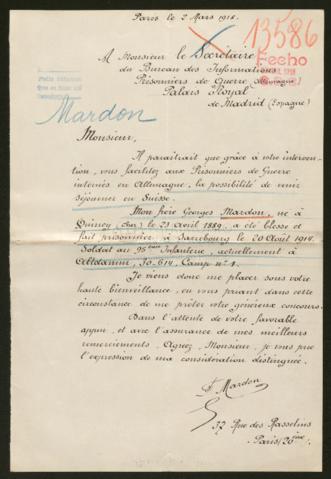 Paris le 2 Mars 1918.
13586
A Monsieur le Secrétaire
du Bureau des Informations
Prisonniers de Guerre
Fecho
Palais Royal
de Madrid (Espagne)
Mardon
Monsieur,
Il paraîtrait que grâce à votre interven-
tion, vous facilitez aux Prisonniers de Guerre
internés en Allemagne, la possibilité de venir
séjourner en Suisse.
Mon frère Georges Mardon, né à
Quincy (Cher) le 23 Août 1889, a été blessé et
fait prisonnier à Sarrebourg le 20 Août 1914.
Soldat au 95ème Infanterie, actuellement à
Altdamm, 30.614, Camp n° 1.
Je viens donc me placer sous votre
haute bienveillance, en vous priant dans cette
circonstance de me prêter votre gracieux concours.
Dans l'attente de votre favorable
appui, et avec l'assurance de mes meilleurs
remerciements. Agréez, Monsieur, je vous prie
l'expression de ma considération distinguée.
Mardon
37 Rue des Rasselins
Paris 20ème